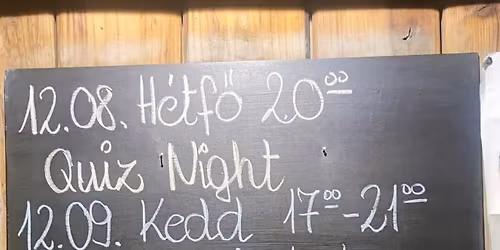 12.08. Hétfő 20⁰⁰
Quiz Night
12.09. Kedd 17⁰⁰-21⁰⁰